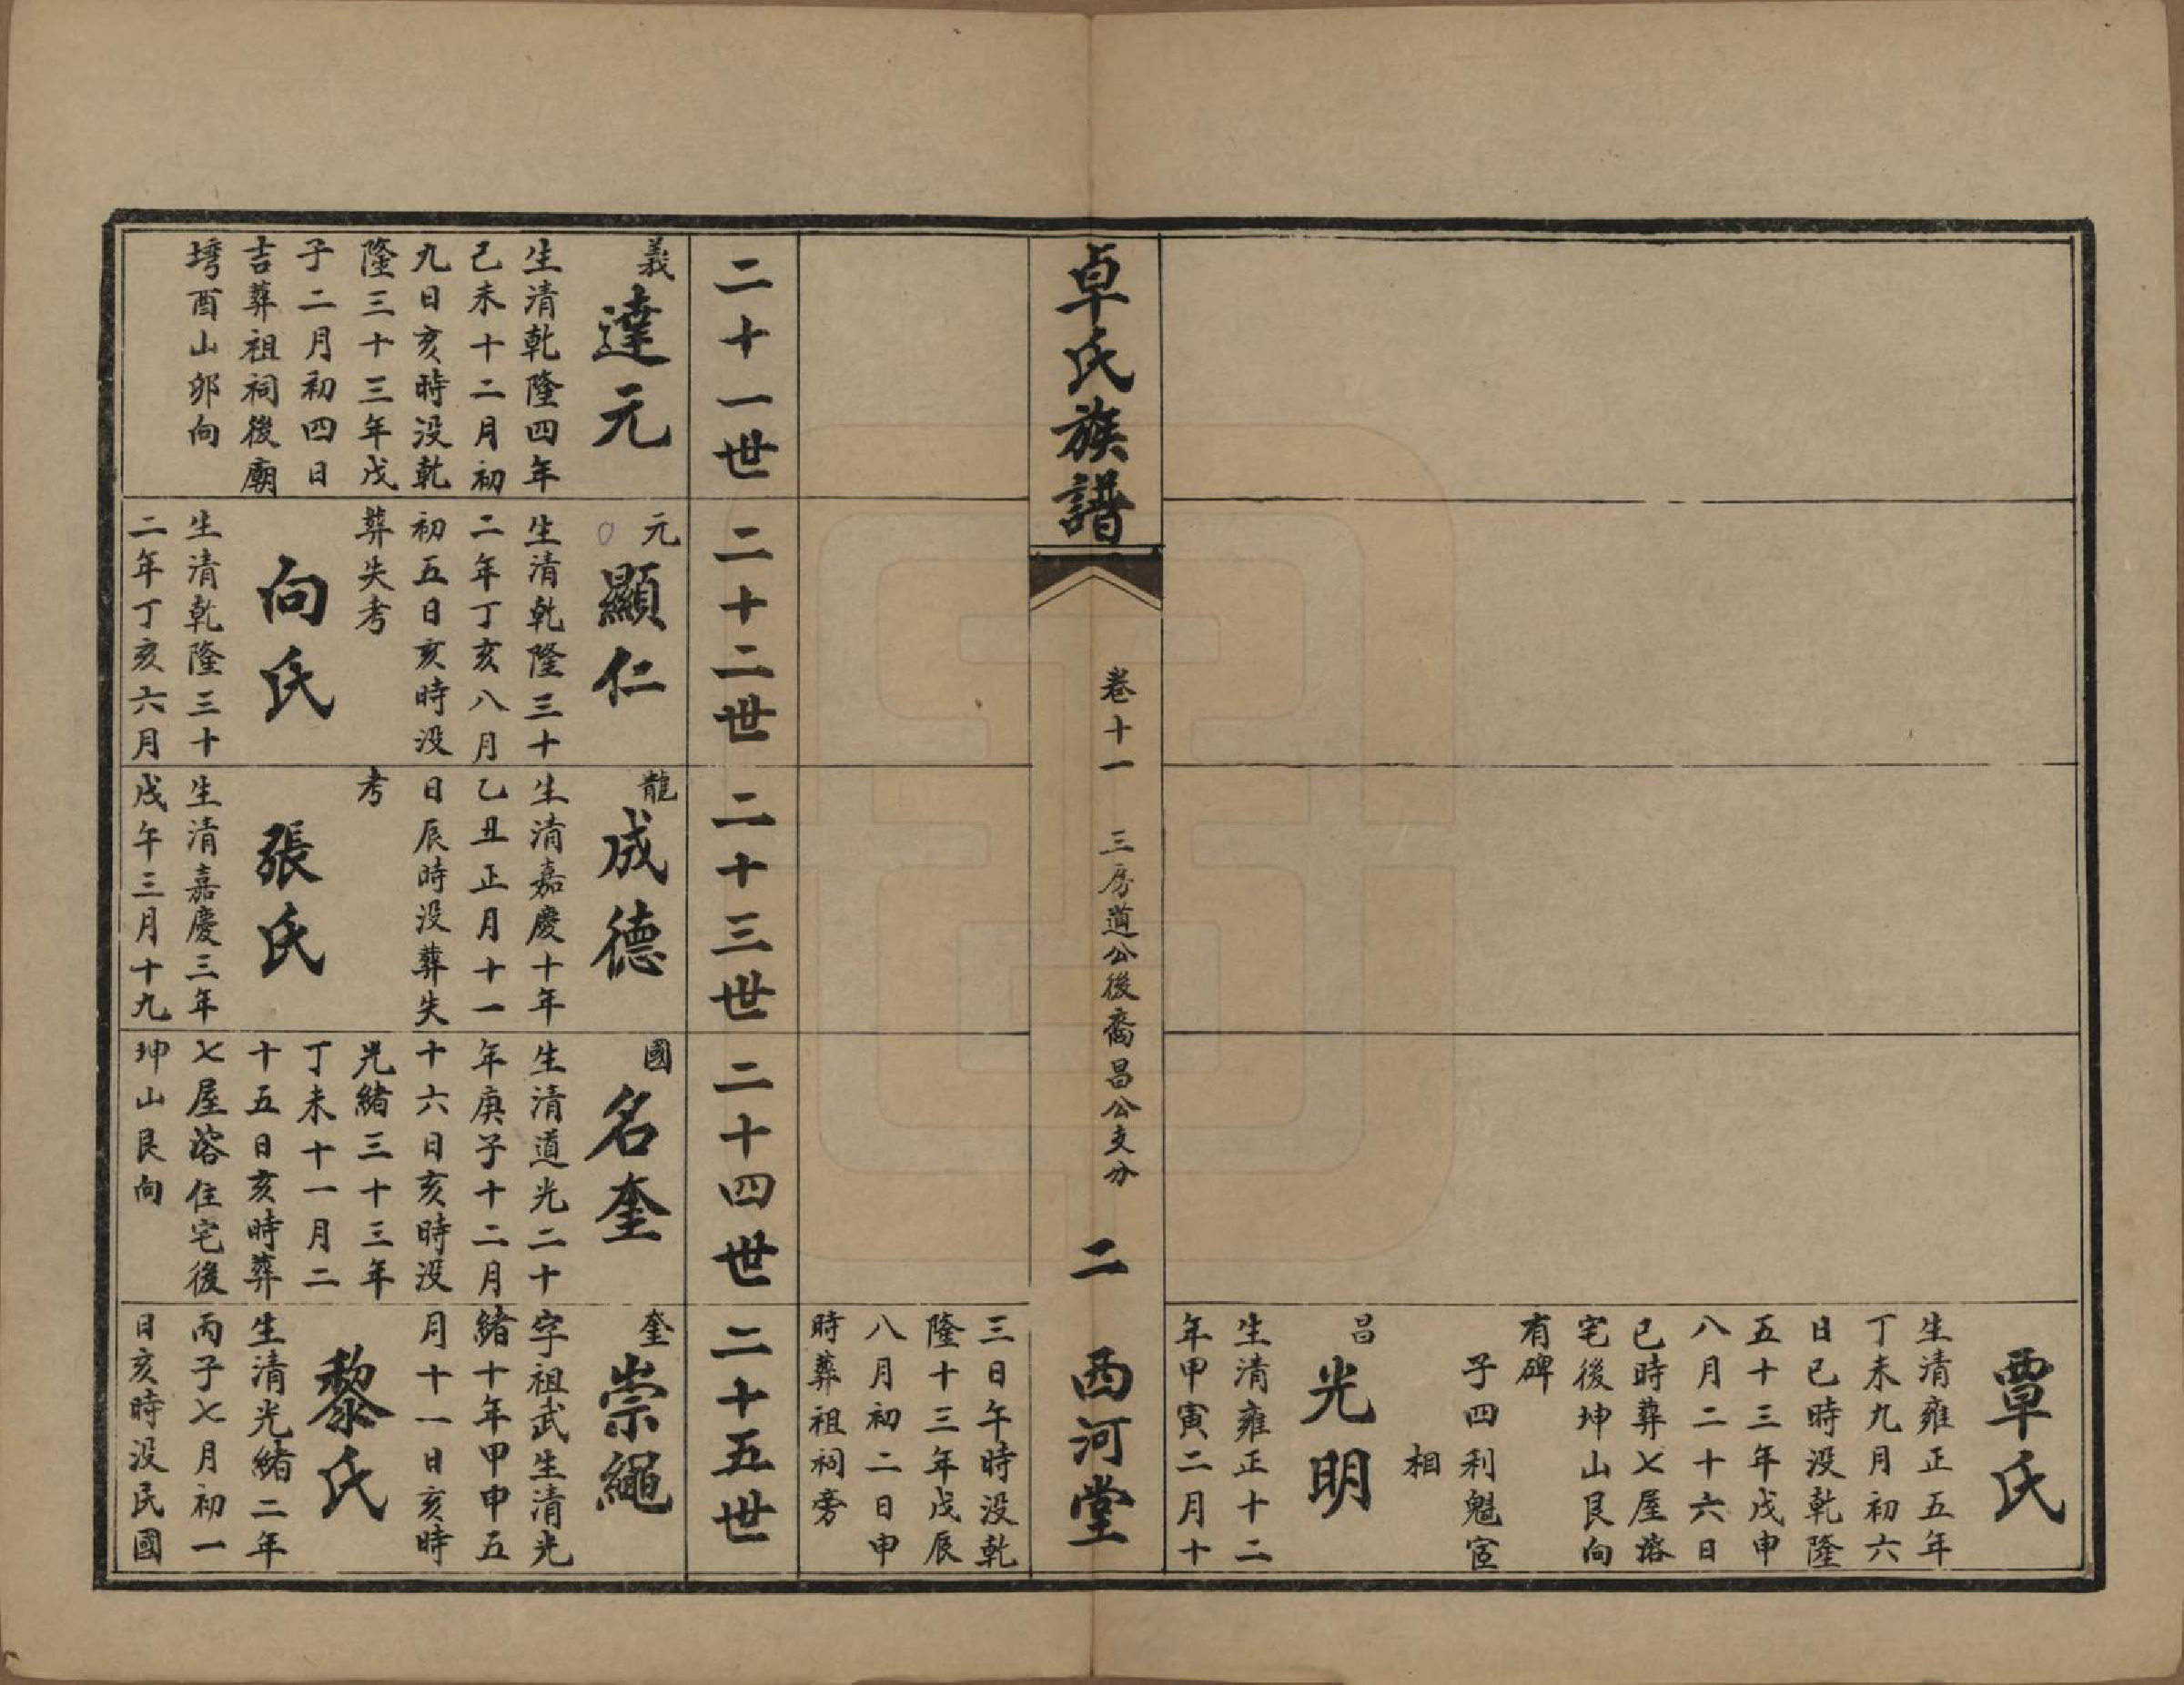 覃氏
生清雍正五年
丁未九月初六
日巳時没乾隆
五十三年戊申
八月二十六日
巳時葬七屋溶
宅後坤山艮向
有碑
子四利魁宦
相
昌
光明
生清雍正十二
年甲寅二月十
卓氏族譜
卷十一 三房道公後裔昌公支分
二
西河堂
三日午時没乾
隆十三年戊辰
八月初二日申
時葬祖祠旁
二十一世
二十二世
二十三世
二十四世
二十五世
義
達元
生清乾隆四年
己未十二月初
九日亥時没乾
隆三十三年戊
子二月初四日
吉葬祖祠後廟
塆酉山卯向
元
顯仁
生清乾隆三十
二年丁亥八月
初五日亥時没
葬失考
向氏
生清乾隆三十
二年丁亥六月
龍
成德
生清嘉慶十年
乙丑正月十一
日辰時没葬失
考
張氏
生清嘉慶三年
戊午三月十九
國
名奎
生清道光二十
年庚子十二月
十六日亥時没
光緒三十三年
丁未十一月二
十五日亥時葬
七屋溶住宅後
坤山艮向
奎
崇繩
字祖武生清光
緒十年甲申五
月十一日亥時
黎氏
生清光緒二年
丙子七月初一
日亥時没民國